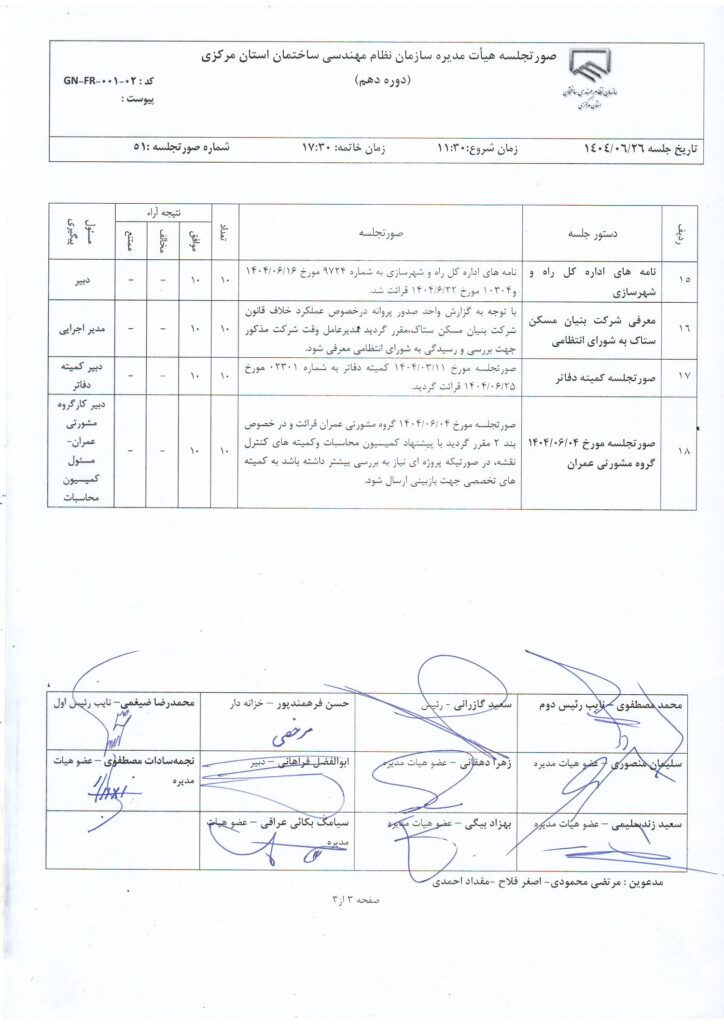 صورتجلسه هیأت مدیره سازمان نظام مهندسی ساختمان استان مرکزی
(دوره دهم)
کد : GN-FR-۰۰۱-۰۲
پیوست :
سازمان نظام مهندسی ساختمان
استان مرکزی
تاریخ جلسه ۱۴۰۴/۰۶/۲۶ زمان شروع:۱۱:۳۰ زمان خاتمه: ۱۷:۳۰ شماره صورتجلسه :۵۱
ردیف دستور جلسه صورتجلسه تعداد نتیجه آراء مسئول پیگیری
موافق مخالف ممتنع
۱۵ نامه های اداره کل راه و شهرسازی
نامه های اداره کل راه و شهرسازی به شماره ۹۷۲۴ مورخ ۱۴۰۴/۰۶/۱۶
و۱۰۳۰۴ مورخ ۱۴۰۴/۶/۲۲ قرائت شد.
۱۰ ۱۰ – – دبیر
۱۶ معرفی شرکت بنیان مسکن
ستاک به شورای انتظامی
با توجه به گزارش واحد صدور پروانه درخصوص عملکرد خلاف قانون
شرکت بنیان مسکن ستاک،مقرر گردید مدیرعامل وقت شرکت مذکور
جهت بررسی و رسیدگی به شورای انتظامی معرفی شود.
۱۰ ۱۰ – – مدیر اجرایی
۱۷ صورتجلسه کمیته دفاتر
صورتجلسه مورخ ۱۴۰۴/۰۳/۱۱ کمیته دفاتر به شماره ۰۲۳۰۱ مورخ
۱۴۰۴/۰۶/۲۵ قرائت گردید.
۱۰ ۱۰ – – دبیر کمیته
دفاتر
۱۸ صورتجلسه مورخ ۱۴۰۴/۰۶/۰۴
گروه مشورتی عمران
صورتجلسه مورخ ۱۴۰۴/۰۶/۰۴ گروه مشورتی عمران قرائت و در خصوص
بند ۲ مقرر گردید با پیشنهاد کمیسیون محاسبات وکمیته های کنترل
نقشه، در صورتیکه پروژه ای نیاز به بررسی بیشتر داشته باشد به کمیته
های تخصصی جهت بازبینی ارسال شود.
۱۰ ۱۰ – –
دبیر کارگروه
مشورتی
عمران-
مسئول
کمیسیون
محاسبات
محمد مصطفوی – نایب رئیس دوم سعید گازرانی - رئیس حسن فرهمندپور – خزانه دار محمدرضا ضیغمی– نایب رئیس اول
مرخصی
سلیمان منصوری – عضو هیات مدیره زهرا دهقانی – عضو هیات مدیره ابوالفضل فراهانی – دبیر نجمه‌سادات مصطفوی – عضو هیات
مدیره
سعید زندسلیمی – عضو هیات مدیره بهزاد بیگی – عضو هیات مدیره سیامک بکائی عراقی – عضو هیات
مدیره
مدعوین : مرتضی محمودی- اصغر فلاح -مقداد احمدی
صفحه ۳ از۳